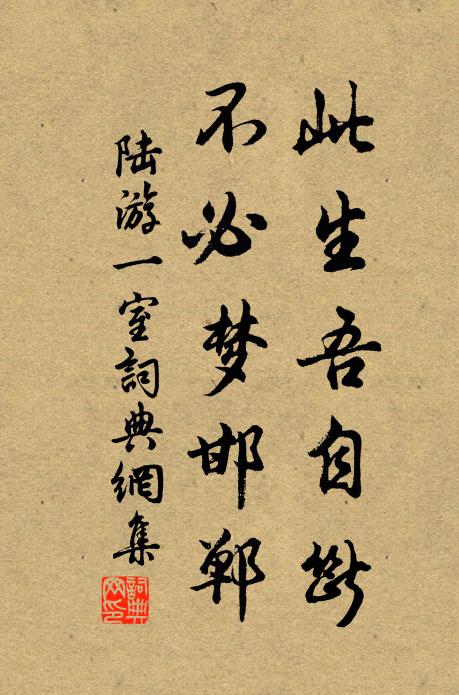 此生吾自斷
不必梦邯鄲
陆游一室詞典網集
詞典网印